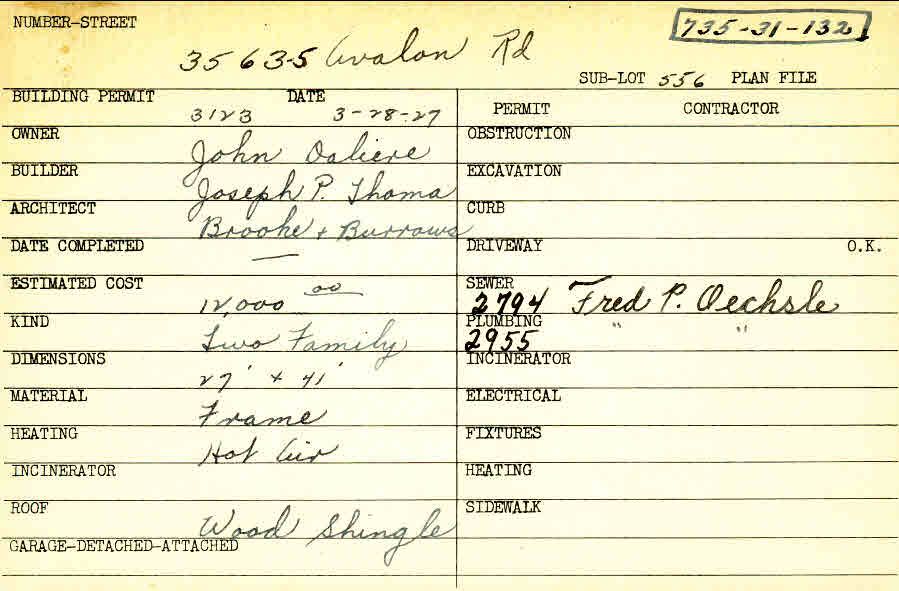 NUMBER-STREET
735-31-132
35635 Avalon Rd
SUB-LOT 556 PLAN FILE
BUILDING PERMIT DATE
3123 3-28-27
PERMIT CONTRACTOR
OWNER John
OBSTRUCTION
BUILDER Joseph P. Thoma
EXCAVATION
ARCHITECT Brooke + Burrows
CURB
DATE COMPLETED —
DRIVEWAY O.K.
ESTIMATED COST 12,000 00
SEWER 2794 Fred P. Oechsle
KIND Two Family
PLUMBING 2955 " "
DIMENSIONS 27' x 41'
INCINERATOR
MATERIAL Frame
ELECTRICAL
HEATING Hot Air
FIXTURES
INCINERATOR
HEATING
ROOF Wood Shingle
SIDEWALK
GARAGE-DETACHED-ATTACHED